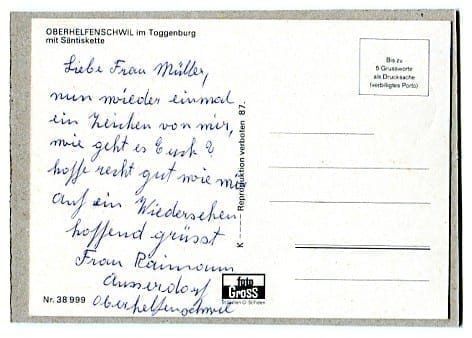 OBERHELFENSCHWIL im Toggenburg
mit Säntiskette
Liebe Frau Müller,
nun wieder einmal
ein Zeichen von mir,
wie geht es Euch?
hoffe recht gut wie mir
Auf ein Wiedersehen
hoffend grüsst
Frau Raimann
Ausserdorf
Oberhelfenschwil
Nr. 38 999
K Reproduktion verboten 87.
foto
GROSS
St. Gallen
Bis zu
5 Grussworte
als Drucksache
(verbilligtes Porto)